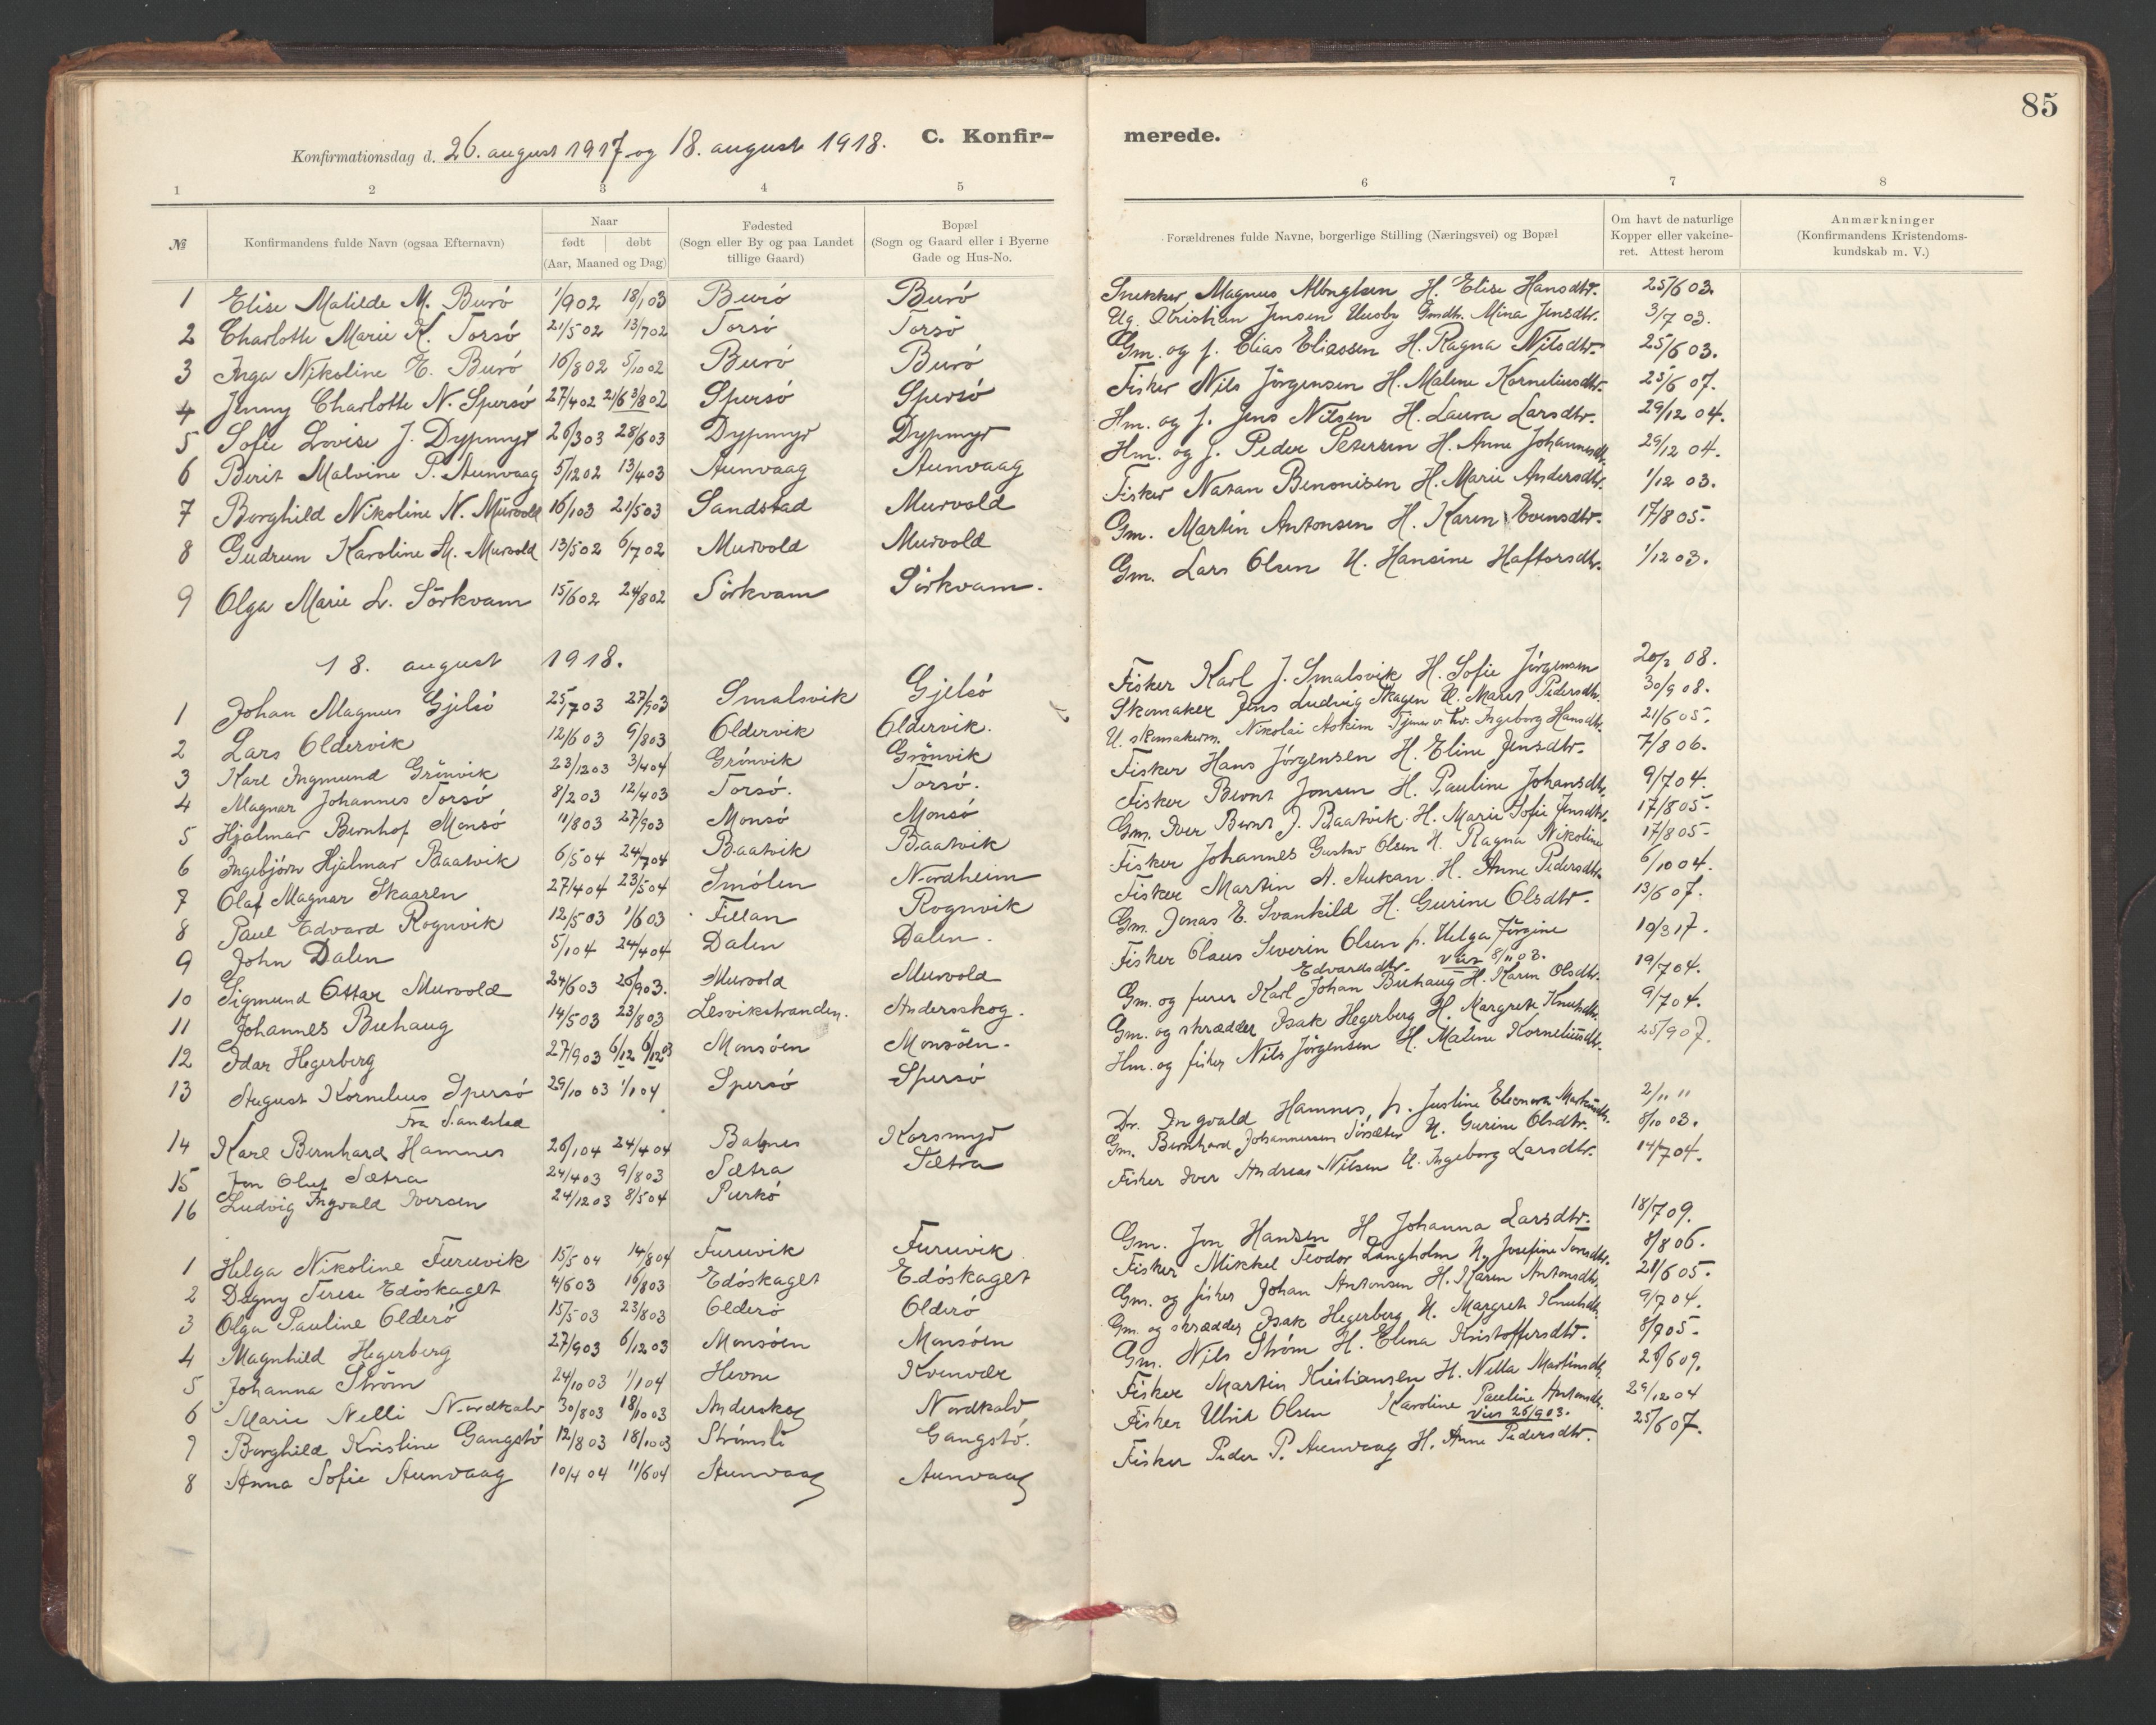 85
Konfirmationsdag d. 26. august 1917 og 18. august 1918. C. Konfir- merede.
1 2 3 4 5 6 7 8
№ Konfirmandens fulde Navn (ogsaa Efternavn) Naar født døbt (Aar, Maaned og Dag) Fødested (Sogn eller By og paa Landet tillige Gaard) Bopæl (Sogn og Gaard eller i Byerne Gade og Hus-No. Forældrenes fulde Navne, borgerlige Stilling (Næringsvei) og Bopæl Om havt de naturlige Kopper eller vakcineret. Attest herom Anmærkninger (Konfirmandens Kristendomskundskab m. V.)
1 Elise Matilde M. Burö 1/902 18/103 Burö Burö Snekker Magnus H. Elise Hansdtr. 25/603.
2 Charlotte Marie K. Torsö 21/502 13/702 Torsö Torsö Ug. Kristian Jensen Uusby Gmdtr. Mina Jensdtr. 3/703.
3 Inga Nikoline E. Burö 16/802 5/1002 Burö Burö Gm. og f. Elias Eliassen H. Ragna Nilsdtr. 25/603.
4 Jenny Charlotte N. Spersö 27/402 21/6 3/802 Spersö Spersö Fisker Nils Jörgensen H. Malene Korneliusdtr. 25/607.
5 Sofie Lovise J. Dypmyr 26/303 28/603 Dypmyr Dypmyr Hm. og f. Jens Nilsen H. Laura Larsdtr. 29/1204.
6 Berit Malvine P. Aunvaag 5/1202 13/403 Aunvaag Aunvaag Hm. og f. Peder Petersen H. Anne Johannesdtr. 29/1204.
7 Borghild Nikoline N. Murvold 16/103 21/503 Sandstad Murvold Fisker Natan Benonisen H. Marie Andersdtr. 1/1203.
8 Gudrun Karoline M. Murvold 13/502 6/702 Murvold Murvold Gm. Martin Antonsen H. Karen Evensdtr. 17/805.
9 Olga Marie L. Sörkvam 15/602 24/802 Sörkvam Sörkvam. Gm. Lars Olsen H. Hansine Haftorsdtr. 1/1203.
18. august 1918.
1 Johan Magnus Gjelsö 25/703 27/903 Smalsvik Gjelsö Fisker Karl J. Smalsvik H. Sofie Jörgensen 20/2 08.
2 Lars Oldervik 12/603 9/803 Oldervik Oldervik. Skomaker Jens Ludvig Skagen H. Maret Pedersdtr. 30/908.
3 Karl Ingmund Grönvik 23/1203 3/404 Grönvik Grönvik U. skomakerm. Nikolai Askim Tjener v Kv. Ingeborg Hansdtr. 21/605.
4 Magnar Johannes Torsö 8/203 12/403 Torsö. Torsö. Fisker Hans Jörgensen H. Eline Jensdtr. 7/806.
5 Hjalmar Bernhof Monsö 11/803 27/903 Monsö Monsö Fisker Bernt Jonsen H. Pauline Johansdtr. 9/704.
6 Ingebjörn Hjalmar Baatvik 6/504 24/704 Baatvik Baatvik Gm. Iver Bernt J. Baatvik H. Marie Sofie Jensdtr. 17/805.
7 Olaf Magnar Skaaren 27/404 23/504 Smölen Nordheim Fisker Johannes Gustav Olsen H. Ragna Nikoline 17/805.
8 Paul Edvard Rognvik 12/503 1/603 Fillan Rognvik Fisker Martin A. Aukan H. Anne Pedersdtr. 6/1004.
9 John Dalen 5/104 24/404 Dalen Dalen. Gm. Jonas E. Svankild H. Gurine Olsdtr. 13/607.
10 Sigmund Ottar Murvold 24/603 20/903. Murvold Murvold Fisker Olaus Severin Olsen p. Helga Jörgine Edvardsdtr. vier 8/1103. 10/317.
11 Johannes Buhaug 14/503 23/803 Lesvikstranden. Andersskog. Gm. og furer Karl Johan Buhaug H. Karen Olsdtr. 19/704.
12 Idar Hegerberg 27/903 6/12 6/1203 Monsöen Monsöen. Gm. og skrædder Isak Hegerberg H. Margrete Knutsdtr. 9/704.
13 August Kornelius Spersö 29/1003 1/104 Spersö Spersö Hm. og fisker Nils Jörgensen H. Malene Korneliusdtr. 25/907.
Fra Sandstad
14 Karl Bernhard Hamnes 26/104 24/404 Batnes Korsmyr Dr. Ingvald Hamnes, p. Justine Eleonora 2/11 11
15 Jon Oluf Sætra 24/403 9/803 Sætra Sætra Gm. Bernhard Johannessen H. Gurine Olsdtr. 8/1003.
16 Ludvig Ingvald Iversen 24/1203 8/504 Purkö Fisker Iver Andreas Nilsen H. Ingeborg Larsdtr. 14/704.
1 Helga Nikoline Furuvik 15/504 14/804 Furuvik Furuvik Gm. Jon Hansen H. Johanna Larsdtr. 18/709.
2 Dagny Terese Edöskaget 4/603 16/803 Edöskaget Edöskaget Fisker Mikkel Teodor Langholm H. Josefine Tomsdtr. 8/806.
3 Olga Pauline Olderö 15/503 23/803 Olderö Olderö Gm. og fisker Johan Antonsen H. Karen Antonsdtr. 21/605.
4 Magnhild Hegerberg 27/903 6/1203 Monsöen Monsöen Gm. og skrædder Isak Hegerberg H. Margrete Knutsdtr. 9/704.
5 Johanna Ström 24/1003 1/104 Hevne Kvenvær Gm. Nils Ström H. Elena Kristoffersdtr. 8/905.
6 Marie Nelli Nordkalv 30/803 18/1003 Anderskog Nordkalv Fisker Martin Kristiansen H. Nella Martinsdtr. 26/609.
7 Borghild Kristine Gangstö 12/803 18/1003 Strömsli Gangstö. Fisker Ulrik Olsen Karoline Pauline Antonsdtr. vier 26/903. 29/1204
8 Anna Sofie Aunvaag 10/404 11/604 Aunvaag Aunvaag Fisker Peder P. Aunvaag H. Anne Pedersdtr. 25/607.